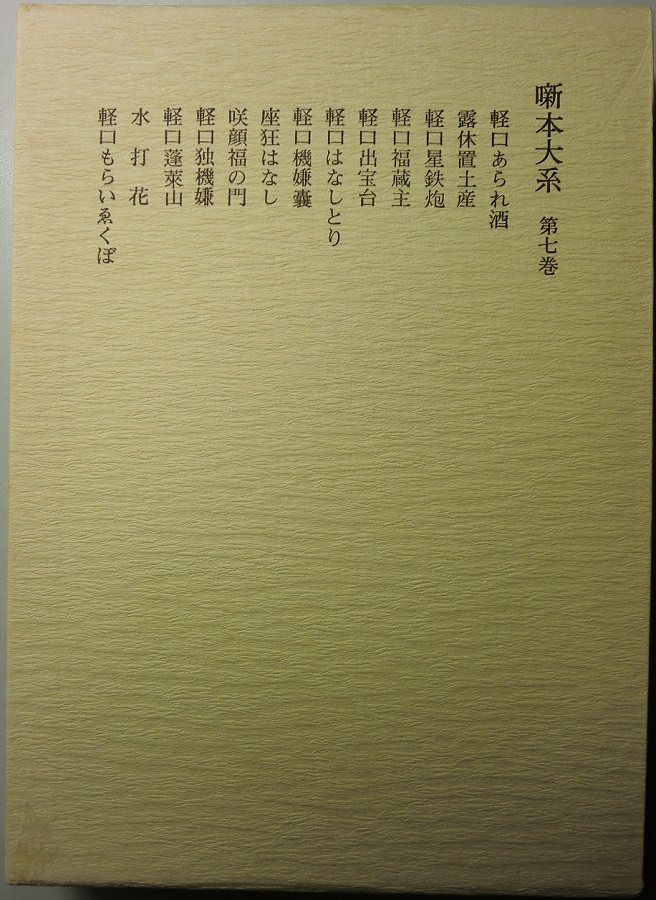 噺本大系 第七巻
軽口あられ酒
露休置土産
軽口星鉄炮
軽口福蔵主
軽口出宝台
軽口はなしとり
軽口機嫌嚢
座狂はなし
咲顔福の門
軽口独機嫌
軽口蓬萊山
水打花
軽口もらいゑくぼ